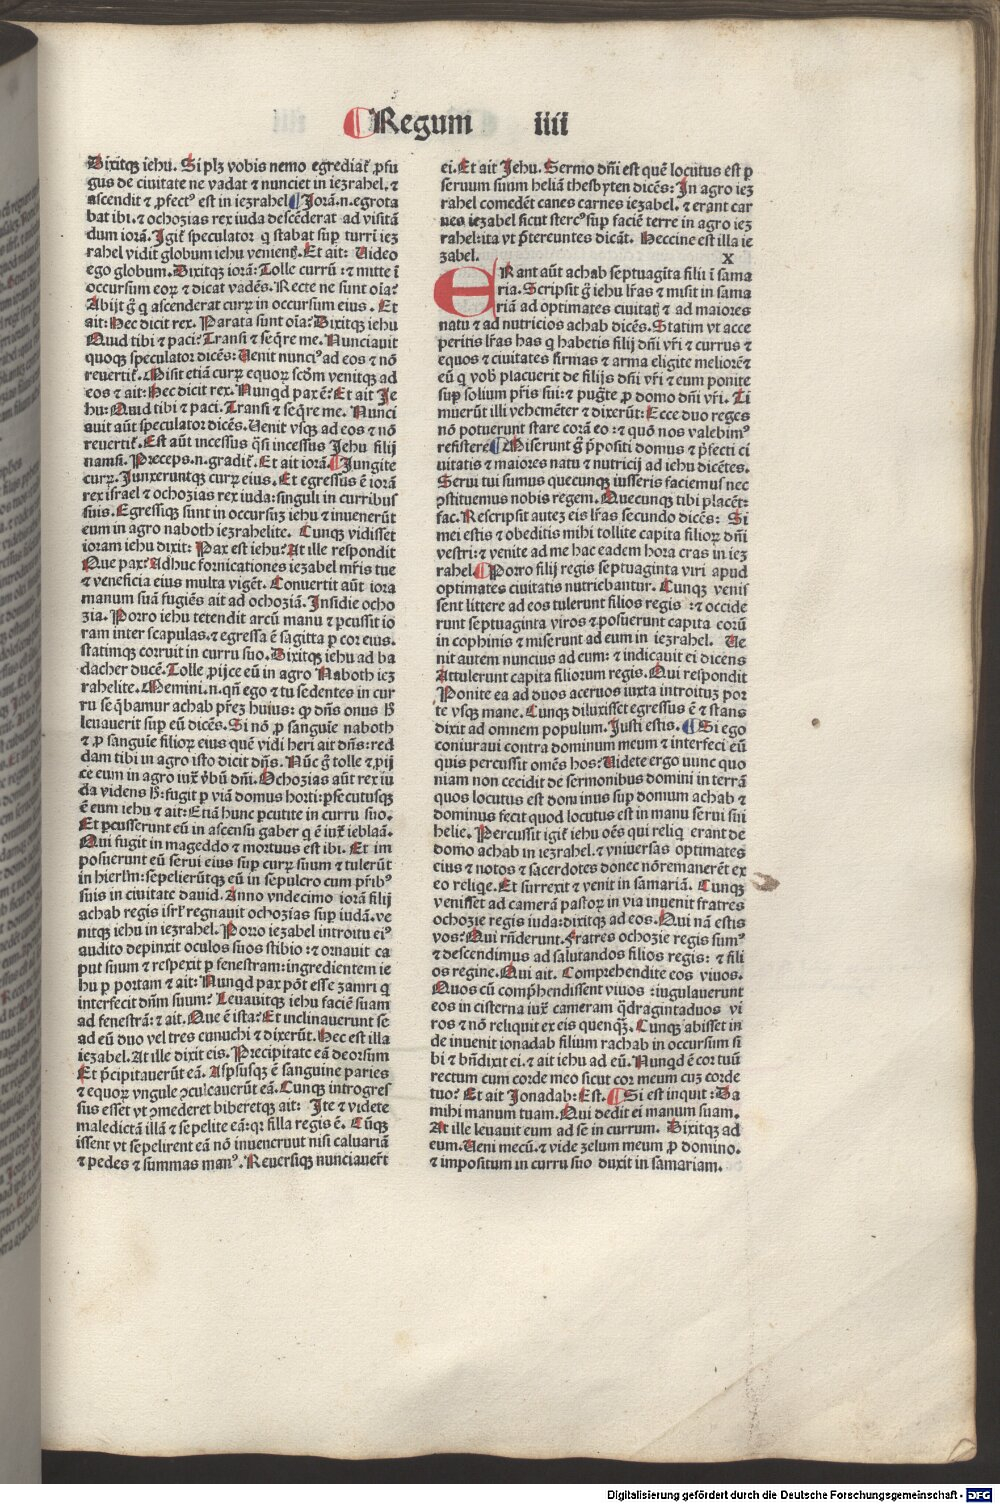 Regum iiii
Dixitqꝫ iehu. Si plꝫ vobis nemo egrediat̃ ꝓfu
gus de ciuitate ne vadat ⁊ nunciet in iezrahel. ⁊
ascendit ⁊ ꝓfectꝰ est in iezrahel Jorã.n.egrota
bat ibi. ⁊ ochozias rex iuda descẽderat ad visitã
dum iorã. Igit̃ speculator q stabat suꝑ turrĩ iez
rahel vidit globum iehu venientꝫ. Et ait: Uideo
ego globum. Dixitqꝫ iorã: Tolle currũ : ⁊ mitte ĩ
occursum eoꝝ ⁊ dicat vadẽs. Recte ne sunt oĩa?
Abijt g̃ q ascenderat curꝝ in occursum eius. Et
ait: Hec dicit rex. Parata sunt oĩa? Dixitqꝫ iehu
Quid tibi ⁊ paci? Trãsi ⁊ seq̃re me. Nunciauit
quoqꝫ speculator dicẽs: Uenit nunciꝰ ad eos ⁊ nõ
reuertit̃. Misit etiã curꝝ equoꝝ scd̃m venitqꝫ ad
eos ⁊ ait: Hec dicit rex. Nunqd pax ẽ? Et ait Je
hu: Quid tibi ⁊ paci. Transi ⁊ seq̃re me. Nunci
auit aũt speculator dicẽs. Uenit vsqꝫ ad eos ⁊ nõ
reuertit̃. Est aũt incessus q̃si incessus Jehu filij
namsi. Preceps.n.gradit̃. Et ait iorã. Jungite
curꝝ. Junxeruntqꝫ curꝝ eius. Et egressus ẽ iorã
rex israel ⁊ ochozias rex iuda: singuli in curribus
suis. Egressiqꝫ sunt in occursuꝫ iehu ⁊ inuenerũt
eum in agro naboth iezrahelite. Cunqꝫ vidisset
ioram iehu dixit: Pax est iehu? At ille respondit
Que pax? Adhuc fornicationes iezabel mr̃is tue
⁊ veneficia eius multa vigẽt. Conuertit aũt iora
manum suã fugiẽs ait ad ochoziã. Insidie ocho
zia. Porro iehu tetendit arcũ manu ⁊ ꝑcussit io
ram inter scapulas. ⁊ egressa ẽ sagitta ꝑ cor eius.
statimqꝫ corruit in curru suo. Dixitqꝫ iehu ad ba
dacher ducẽ. Tolle ꝓijce eũ in agro Naboth iez
rahelite. Memini.n.qñ ego ⁊ tu sedentes in cur
ru seq̃bamur achab pr̃eꝫ huius: ꝙ dñs onus ħ
leuauerit suꝑ eũ dicẽs. Si nõ ꝓ sanguĩe naboth
⁊ ꝓ sanguĩe filioꝝ eius quẽ vidi heri ait dñs: red
dam tibi in agro isto dicit dñs. Nũc g̃ tolle ⁊ ꝓij
ce eum in agro iux̃ ṽbũ dñi. Ochozias aũt rex iu
da videns ħ: fugit ꝑ viã domus horti: ꝑsecutusqꝫ
ẽ eum iehu ⁊ ait: Etiã hunc ꝑcutite in curru suo.
Et ꝑcusserunt eũ in ascensu gaber q ẽ iux̃ ieblaã.
Qui fugit in mageddo ⁊ mortuus est ibi. Et im
posuerunt eũ serui eius suꝑ curꝝ suum ⁊ tulerũt
in hierlm̃: sepelierũtqꝫ eũ in sepulcro cum pr̃ibꝰ
suis in ciuitate dauid. Anno vndecimo iorã filij
achab regis isrl̃ regnauit ochozias suꝑ iudã. ve
nitqꝫ iehu in iezrahel. Porro iezabel introitu eiꝰ
audito depinxit oculos suos stibio: ⁊ ornauit ca
put suum ⁊ respexit ꝑ fenestram: ingredientem ie
hu ꝑ portam ⁊ ait: Nunqd pax põt esse zamri q
interfecit dñm suum? Leuauitqꝫ iehu faciẽ suam
ad fenestrã: ⁊ ait. Que ẽ ista? Et inclinauerunt se
ad eũ duo vel tres eunuchi ⁊ dixerũt. Hec est illa
iezabel. At ille dixit eis. Precipitate eã deorsum
Et p̃cipitauerũt eã. Aspsusqꝫ ẽ sanguine paries
⁊ equoꝝ vngule ꝯculcauerũt eã. Cunqꝫ introgres
sus esset vt ꝯmederet biberetqꝫ ait: Ite ⁊ videte
maledictã illã ⁊ sepelite eã: qꝛ filia regis ẽ. Cũqꝫ
issent vt sepelirent eã nõ inuenerunt nisi caluariã
⁊ pedes ⁊ summas manꝰ. Reuersiqꝫ nunciauer̃t
ei. Et ait Jehu. Sermo dñi est quẽ locutus est ꝑ
seruum suum heliã thesbyten dicẽs: In agro iez
rahel comedẽt canes carnes iezabel. ⁊ erant car
nes iezabel sicut stercꝰ suꝑ faciẽ terre in agro iez
rahel: ita vt p̃tereuntes dicãt. Heccine est illa ie
zabel. X
ERant aũt achab septuagĩta filij ĩ sama
ria. Scripsit g̃ iehu lr̃as ⁊ misit in sama
riã ad optimates ciuitatꝫ ⁊ ad maiores
natu ⁊ ad nutricios achab dicẽs. Statim vt acce
peritis lr̃as has q habetis filij dñi vr̃i ⁊ currus ⁊
equos ⁊ ciuitates firmas ⁊ arma eligite meliorẽ ⁊
eũ q vob̃ placuerit de filijs dñi vr̃i ⁊ eum ponite
suꝑ solium pr̃is sui: ⁊ pug̃te ꝓ domo dñi vr̃i. Ti
muerũt illi vehemẽter ⁊ dixerũt: Ecce duo reges
nõ potuerunt stare corã eo: ⁊ quõ nos valebimꝰ
resistere Miserunt g̃ p̃positi domus ⁊ p̃fecti ci
uitatis ⁊ maiores natu ⁊ nutricij ad iehu dicẽtes.
Serui tui sumus quecunqꝫ iusseris faciemus nec
ꝯstituemus nobis regem. Quecunqꝫ tibi placẽt:
fac. Rescripsit auteꝫ eis lr̃as secundo dicẽs: Si
mei estis ⁊ obeditis mihi tollite capita filioꝝ dñi
vestri: ⁊ venite ad me hac eadem hora cras in iez
rahel. Porro filij regis septuaginta viri apud
optimates ciuitatis nutriebantur. Cunqꝫ venis
sent littere ad eos tulerunt filios regis : ⁊ occide
runt septuaginta viros ⁊ posuerunt capita eorũ
in cophinis ⁊ miserunt ad eum in iezrahel. Ue
nit autem nuncius ad eum: ⁊ indicauit ei dicens
Attulerunt capita filiorum regis. Qui respondit
Ponite ea ad duos aceruos iuxta introituꝫ por
te vsqꝫ mane. Cunqꝫ diluxisset egressus ẽ ⁊ stans
dixit ad omnem populum. Justi estis. Si ego
coniuraui contra dominum meum ⁊ interfeci eũ
quis percussit omẽs hos? Uidete ergo nunc quo
niam non cecidit de sermonibus domini in terrã
quos locutus est dominus suꝑ domum achab ⁊
dominus fecit quod locutus est in manu serui sui
helie. Percussit igit̃ iehu oẽs qui reliq erant de
domo achab in iezrahel. ⁊ vniuersas optimates
eius ⁊ notos ⁊ sacerdotes donec nõ remanerẽt ex
eo reliqe. Et surrexit ⁊ venit in samariã. Cunqꝫ
venisset ad camerã pastoꝝ in via inuenit fratres
ochozie regis iuda: dixitqꝫ ad eos. Qui nã estis
vos? Qui rñderunt. Fratres ochozie regis sumꝰ
⁊ descendimus ad salutandos filios regis: ⁊ fili
os regine. Qui ait. Comprehendite eos viuos.
Quos cũ comp̃hendissent viuos : iugulauerunt
eos in cisterna iux̃ cameram q̃dragintaduos vi
ros ⁊ nõ reliquit ex eis quenq̃ꝫ. Cunqꝫ abisset in
de inuenit ionadab filium rachab in occursum si
bi ⁊ bñdixit ei. ⁊ ait iehu ad eũ. Nunqd ẽ cor tuũ
rectum cum corde meo sicut cor meum cuꝫ corde
tuo? Et ait Jonadab: Est. Si est inquit : Da
mihi manum tuam. Qui dedit ei manum suam.
At ille leuauit eum ad se in currum. Dixitqꝫ ad
eum. Ueni mecũ. ⁊ vide zelum meum ꝓ domino.
⁊ impositum in curru suo duxit in samariam.
Digitalisierung gefördert durch die Deutsche Forschungsgemeinschaft - DFG